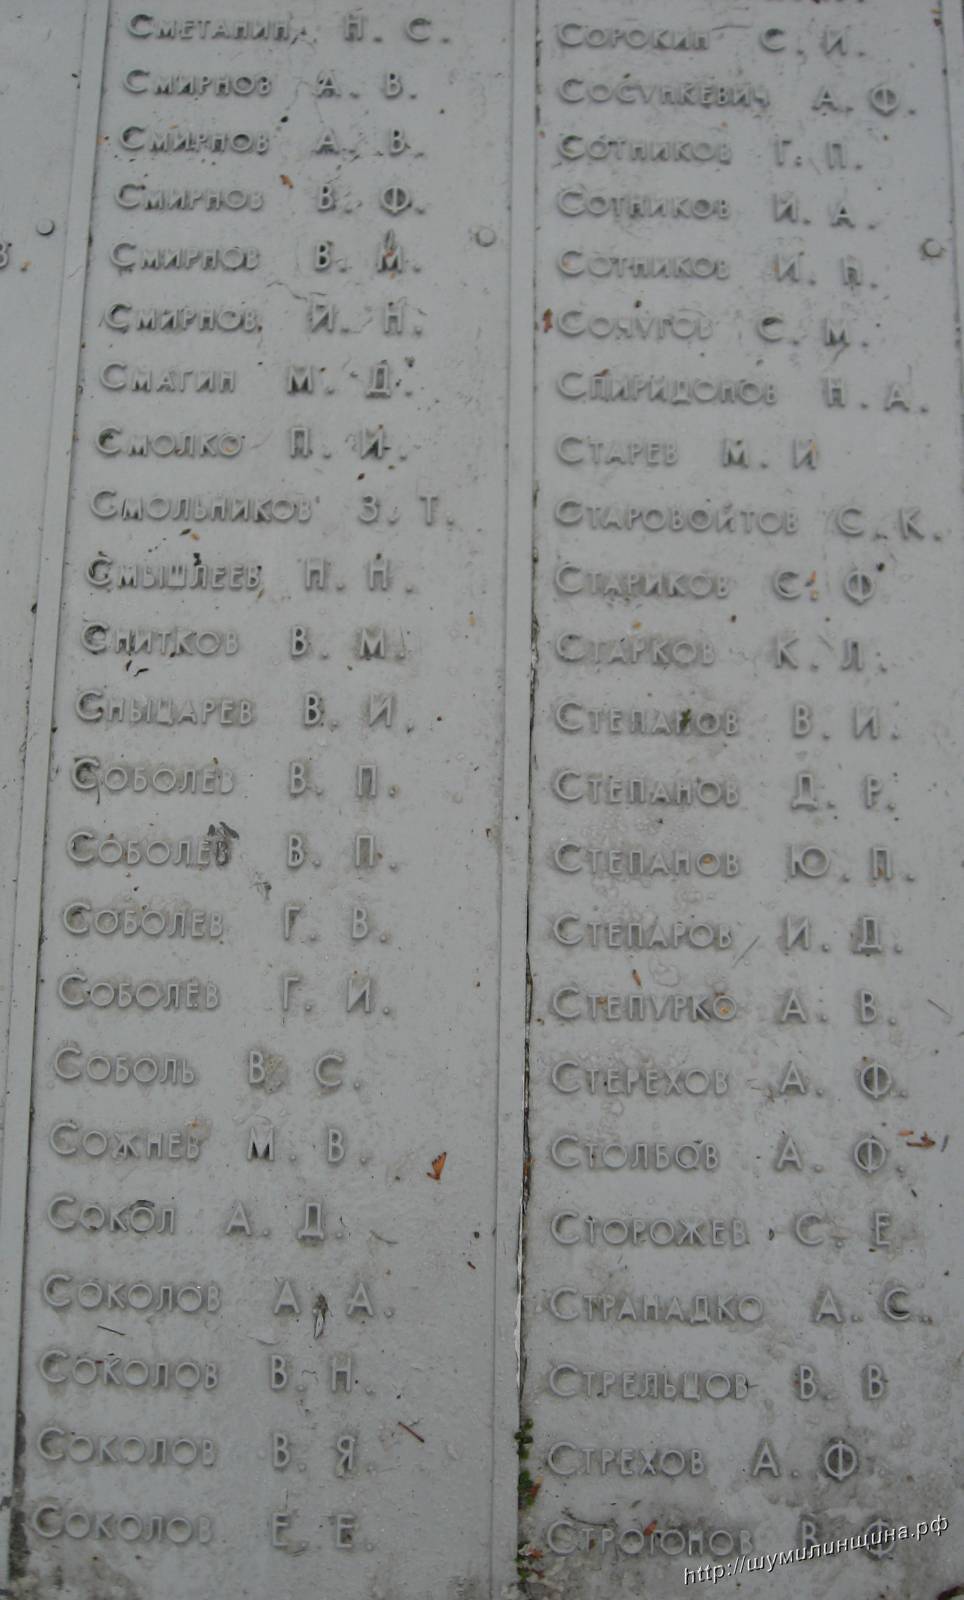 Сметанин Н. С.
Смирнов А. В.
Смирнов А. В.
Смирнов В. Ф.
Смирнов В. М.
Смирнов И. Н.
Смагин М. Д.
Смолко П. И.
Смольников З. Т.
Смышлеев Н. Н.
Снитков В. М.
Сныцарев В. И.
Соболев В. П.
Соболев В. П.
Соболев Г. В.
Соболев Г. И.
Соболь В. С.
Сожнев М. В.
Сокол А. Д.
Соколов А. А.
Соколов В. Н.
Соколов В. Я.
Соколов Е. Е.
Сорокин С. И.
Сосункевич А. Ф.
Сотников Г. П.
Сотников И. А.
Сотников И.
Сочугов С. М.
Спиридонов Н. А.
Старев М. И
Старовойтов С. К.
Стариков С. Ф
Старков К. Л.
Степанов В. И.
Степанов Д. Р.
Степанов Ю. П.
Степаров И. Д.
Степурко А. В.
Стерехов А. Ф.
Столбов А. Ф.
Сторожев С. Е
Странадко А. С.
Стрельцов В. В
Стрехов А. Ф
Строгонов В. Ф
http://шумилинщина.рф